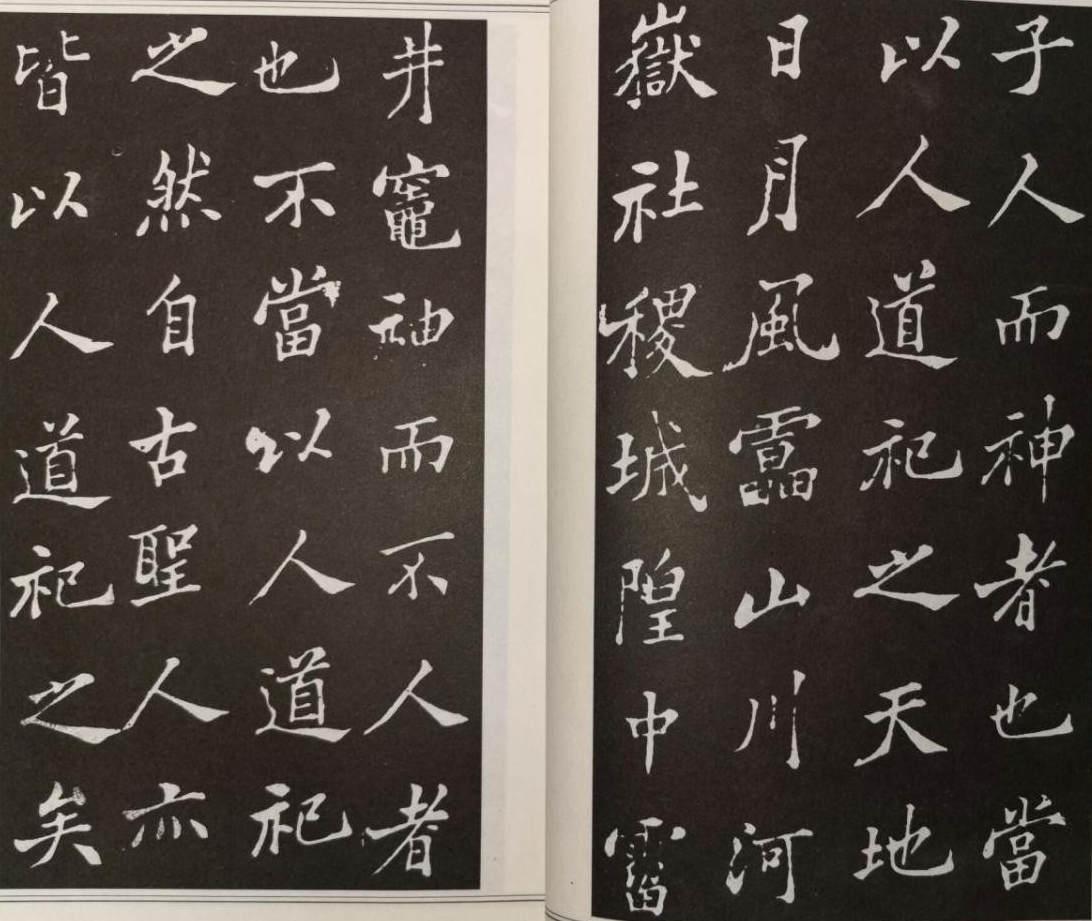 子人而神者也當
以人道祀之天地
日月風靁山川河
嶽社稷城隍中霤
井竈神而不人者
也不當以人道祀
之然自古聖人亦
皆以人道祀之矣